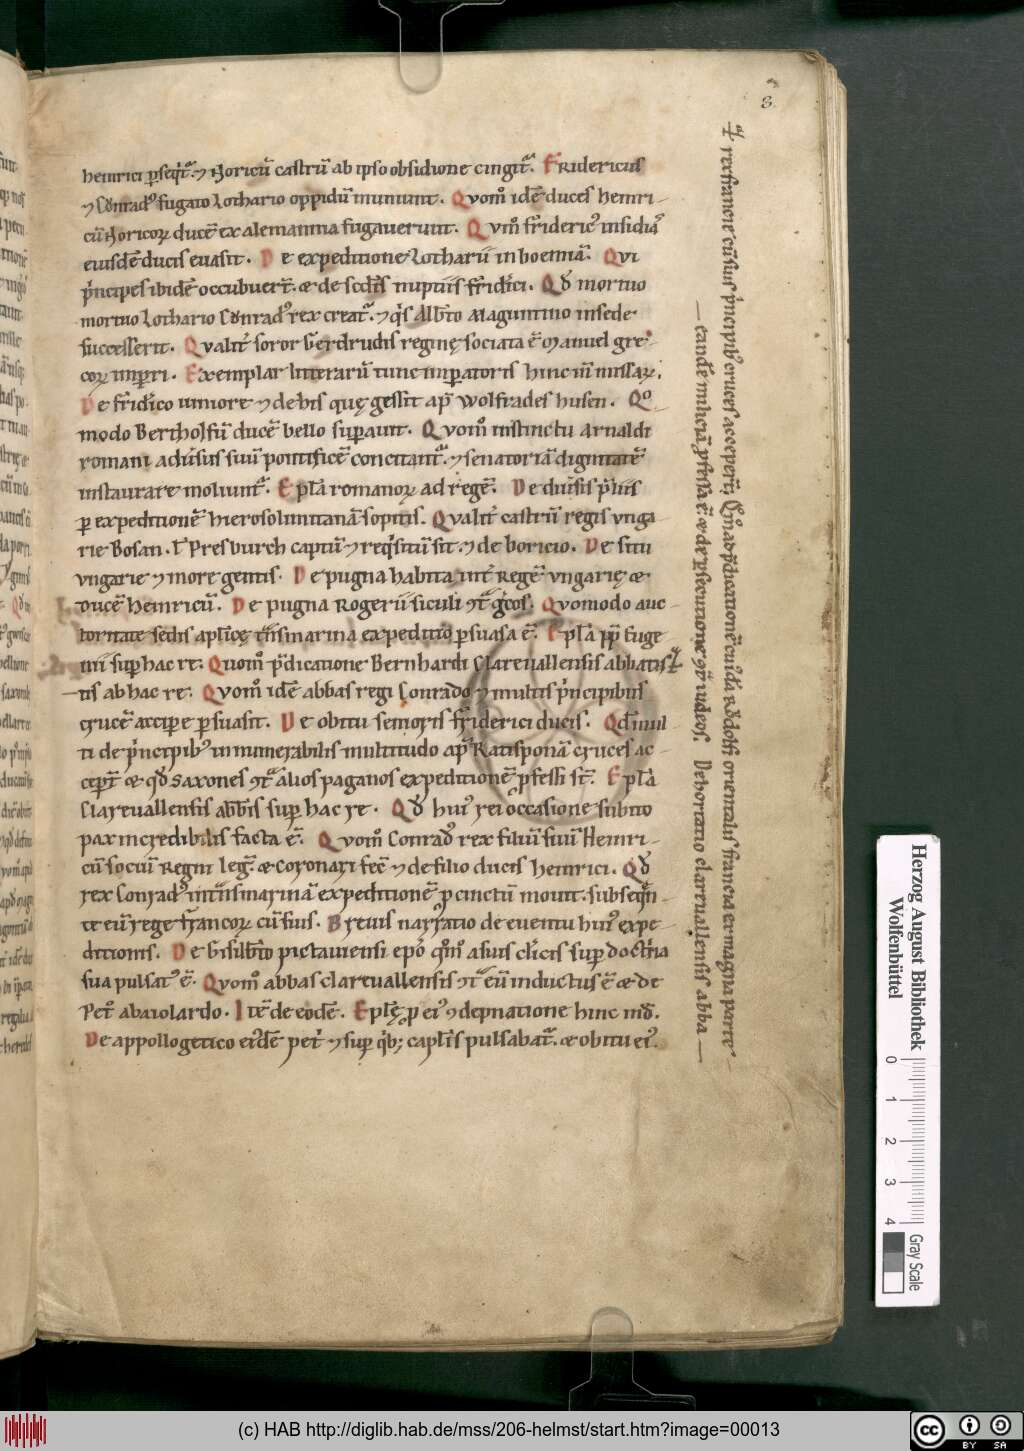 3
henrici pseqit᷑. ⁊ Noricū castrū ab ipso obsidione cingit᷑. Fridericus
⁊ Cōnrad᷒ fugato Lothario oppidū muniunt. Qvom̊ idē duces henri-
cū Noricoꝝ ducē ex alemannia fugauerunt. Qvm̊ frideric᷒ insidias
eiusdē ducis euasit. De expeditione Lotharii in boemiā. Qvi
p̓ncipes ibidē occubuer̄t. & de scd̓is nuptiis frid̓ici. Qđ mortuo
mortuo Lothario Cōnrad᷒ rex creat᷑. ⁊ q̓s Alb̓to Maguntino in sede
successerit. Qvalit̓ soror Gerdrudis reginę sociata ē Manuel gre-
coꝝ imp̱ri. Exemplar litterarū tunc imp̱atoris hinc in̄ missaꝝ.
De frid̓ico iuniore ⁊ de his quę gessit ap̄ Wolfrades husen. Qͦ-
modo Bertholfū ducē bello sup̱auit. Qvom̊ instinctu Arnaldi
romani adu̓sus suū pontificē concitant᷑. ⁊ senatoriā dignitatē
instaurare moliunt᷑. Ep̄la romanoꝝ ad regē. De diu̓sis p̓liis
p̱ expeditionē hierosolimitanā sopitis. Qvalit̓ castrū regis vnga-
rie Bosan. ł Presburch captū ⁊ req̓sitū sit. ⁊ de boricio. De situ
vngarie ⁊ more gentis. De pugna habita int̓ Regē vngarię &
Ducē heinricū. De pugna Rogerii siculi 9t᷑ g̓cos. Qvomodo auc-
toritate sedis apl̄icę t᷑nsmarina expeditio p̱suasa ē. Ep̄la pp̄ Euge-
nii sup̱ hac re. Quom̊ p̄dicatione Bernhardi Clareuallensis abbatis
tis ab hac re. Qvom̊ idē abbas regi Conrado ⁊ multis p̓ncipibus
crucē accipe p̱suasit. De obitu senioris frid̓erici ducis. Qđ mul-
ti de p̓ncipib᷒ innumerabilis multitudo ap̄ Ratisponā cruces ac-
cep̱t̄ & qđ saxones 9t᷑ alios paganos expeditionē p̱fessi st̄. Ep̄la
Clareuallensis abb̄is sup̱ hac re. Qđ hui᷒ rei occasione subito
pax incredibilis facta ē. Qvom̊ Conrad᷒ rex filiū suū Heinri-
cū sociū Regni leg̓. & coronari fec̄ ⁊ de filio ducis henrici. Qđ
rex Conrad᷒ int᷑nsmarinā expeditionē p̱cinctū mouit. subseq̄n-
te eū rege francoꝝ cū suis. Breuis narratio de euentu hui᷒ expe-
ditionis. De Gisilb̓to pictauiensi ep̄o qm̊ a suis cl̓icis sup̱ doct̓na
sua pulsat᷒ ē. Qvom̊ abbas clareuallensis 9t᷑ eū inductus ē & de
Pet̓ abaiolardo. Itē de eodē. Ep̄lę p̱ ei᷒ ⁊ dēpnatione hinc ind̄.
De appollogetico ei᷒dē pet̓ ⁊ sup̱ q̓b; capl̄is pulsabat᷑. & obitu ei᷒.
rex francie cū suis p̓ncipib᷒ cruces acceper̄t. Qm̊ ad p̄dicationē cui᷒dā Rodolfi orientalis francia et magna parte
eandē miliciā p̱fessa ē. & de p̱secutione 9t᷑ iudeos. Dehortatio clareuallensis abba-
Herzog August Bibliothek
Wolfenbüttel
0 1 2 3 4
Gray Scale
(c) HAB http://diglib.hab.de/mss/206-helmst/start.htm?image=00013
cc BY SA